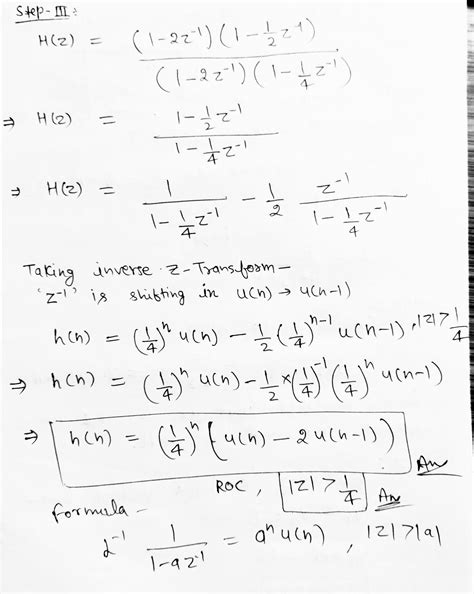 Step-III:
H(z) = (1-2z⁻¹)(1-½z⁻¹) / (1-2z⁻¹)(1-¼z⁻¹)
⇒ H(z) = 1-½z⁻¹ / 1-¼z⁻¹
⇒ H(z) = 1 / 1-¼z⁻¹ - ½ z⁻¹ / 1-¼z⁻¹
Taking inverse z-Transform-
'z⁻¹' is shifting in u(n) → u(n-1)
h(n) = (¼)ⁿ u(n) - ½(¼)ⁿ⁻¹ u(n-1), |z|>¼
⇒ h(n) = (¼)ⁿ u(n) - ½×(¼)⁻¹(¼)ⁿ u(n-1)
⇒ h(n) = (¼)ⁿ (u(n) - 2u(n-1)) An
ROC, |z| > ¼ An
formula -
𝓛⁻¹ 1 / 1-az⁻¹ = aⁿu(n), |z|>|a|